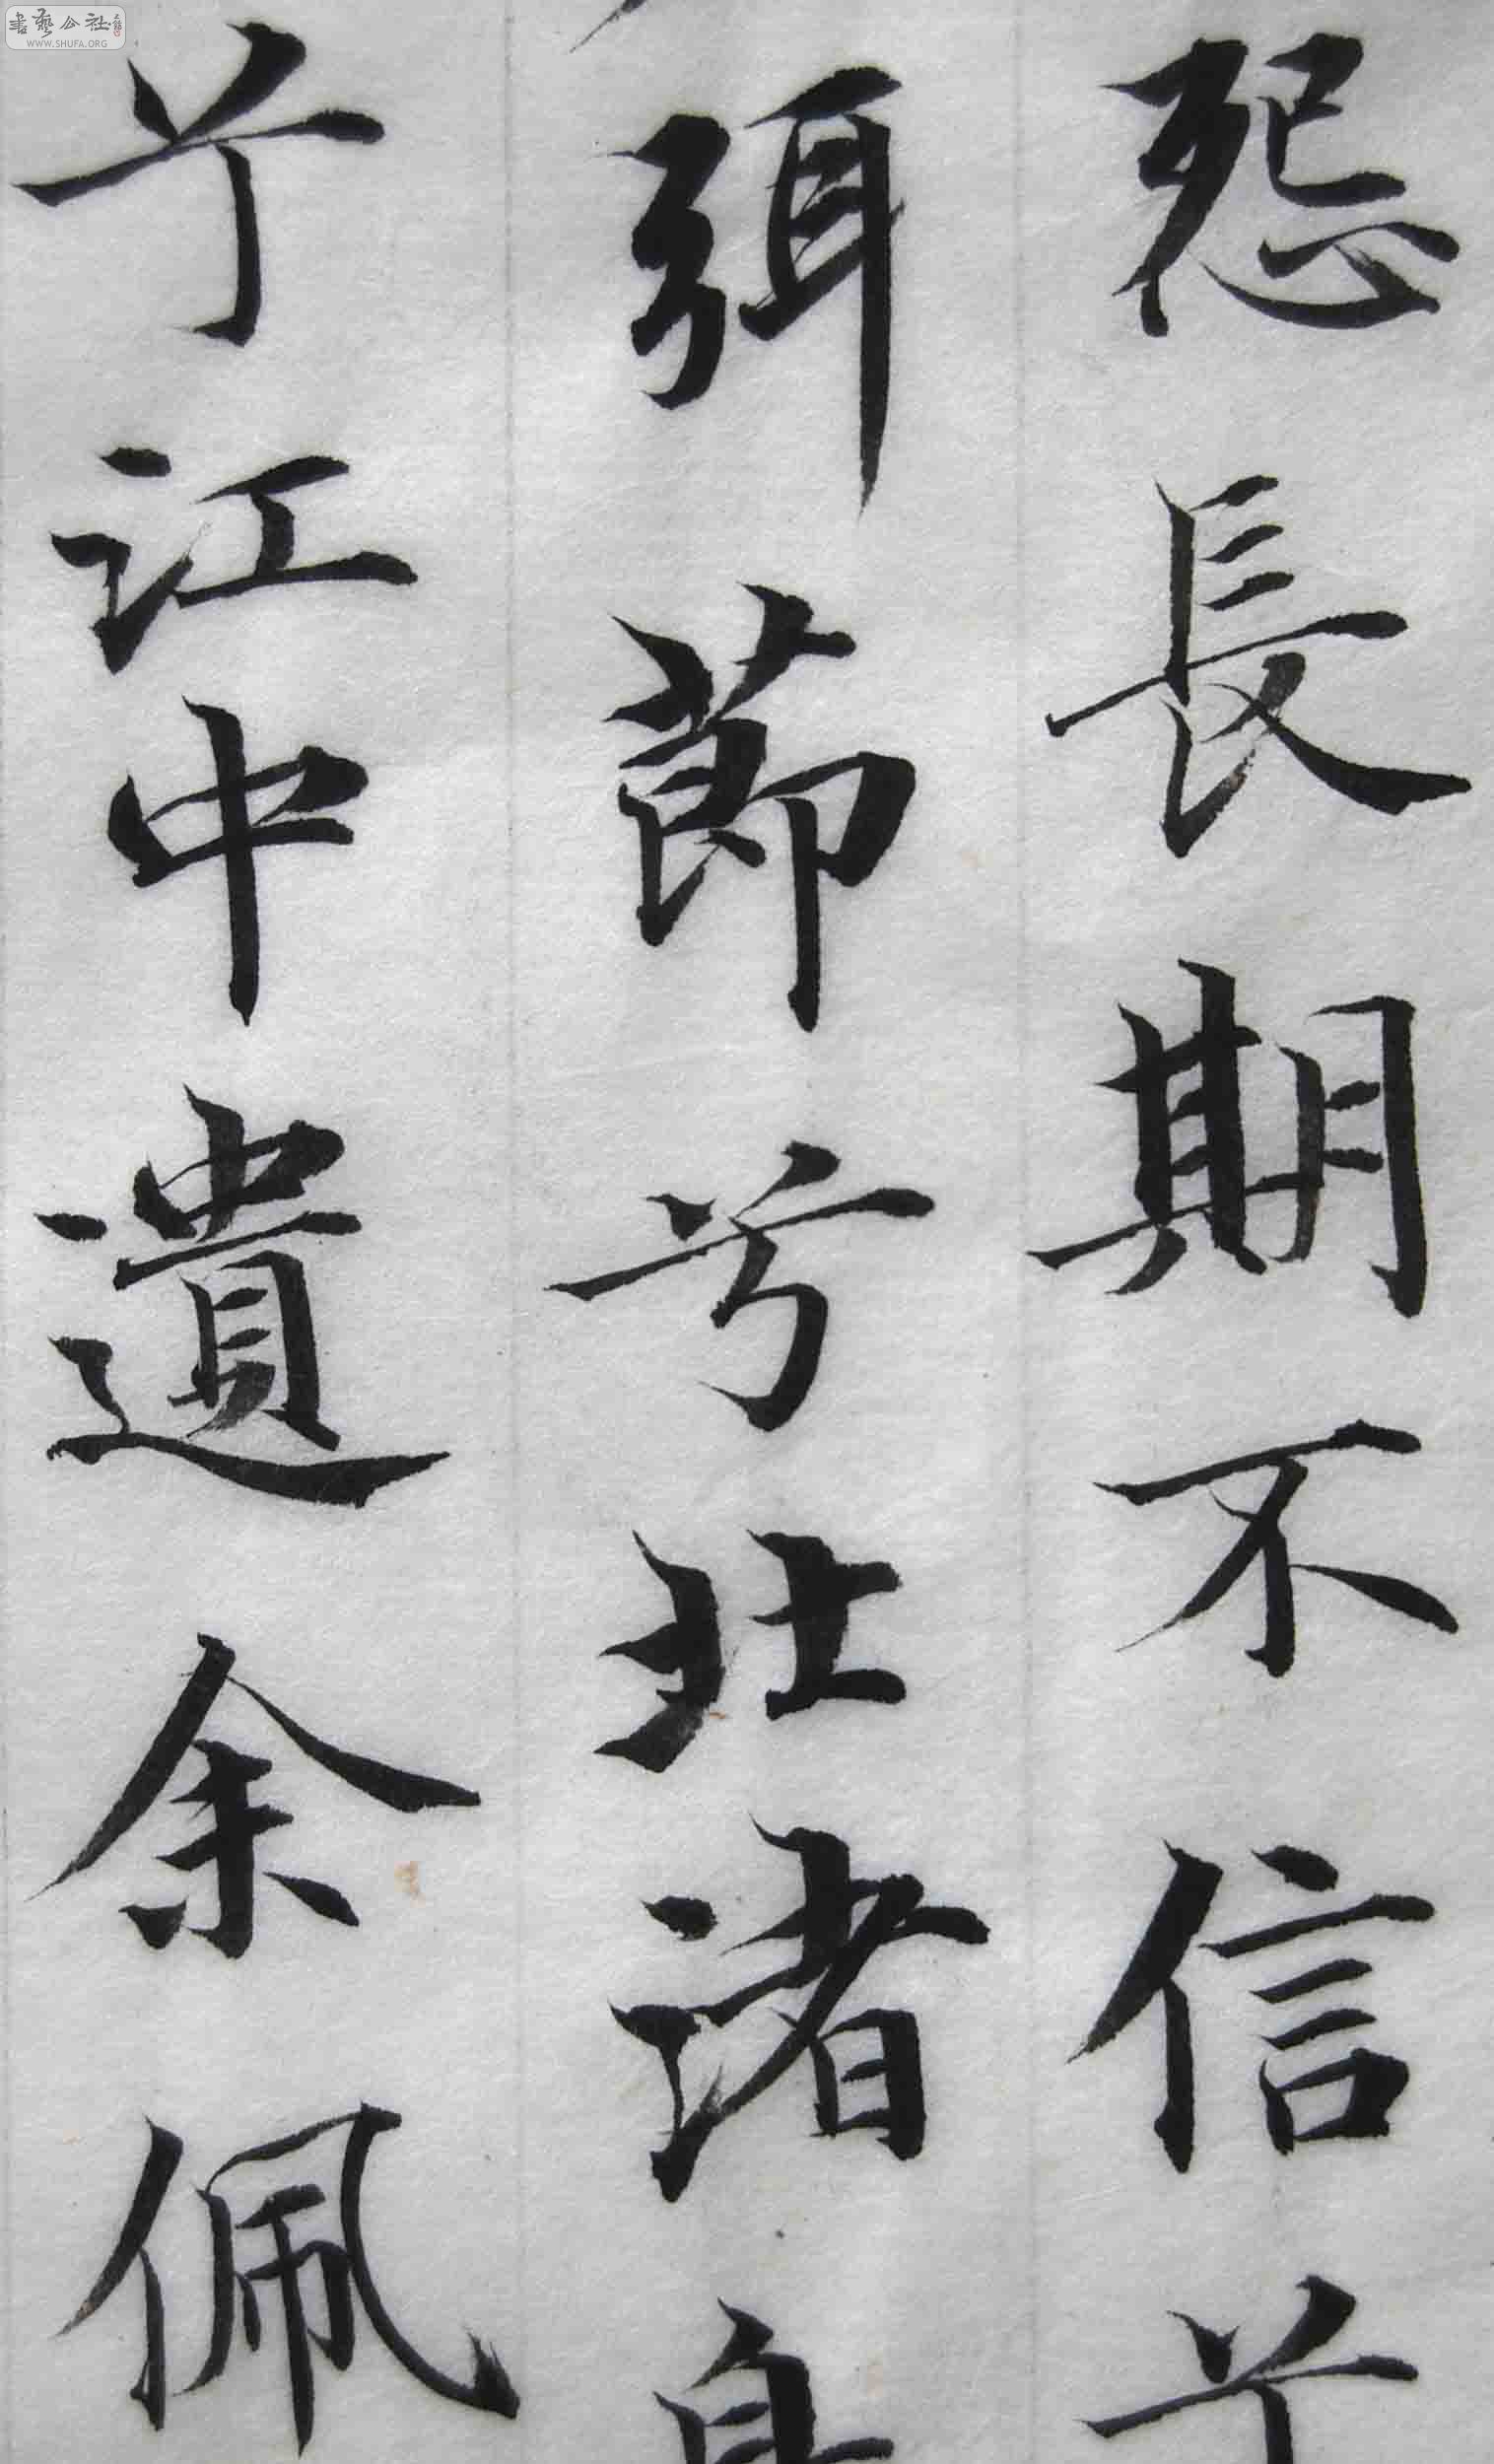 怨長期不信兮
弭節兮北渚鳥
兮江中遺余佩
書藝公社
WWW.SHUFA.ORG